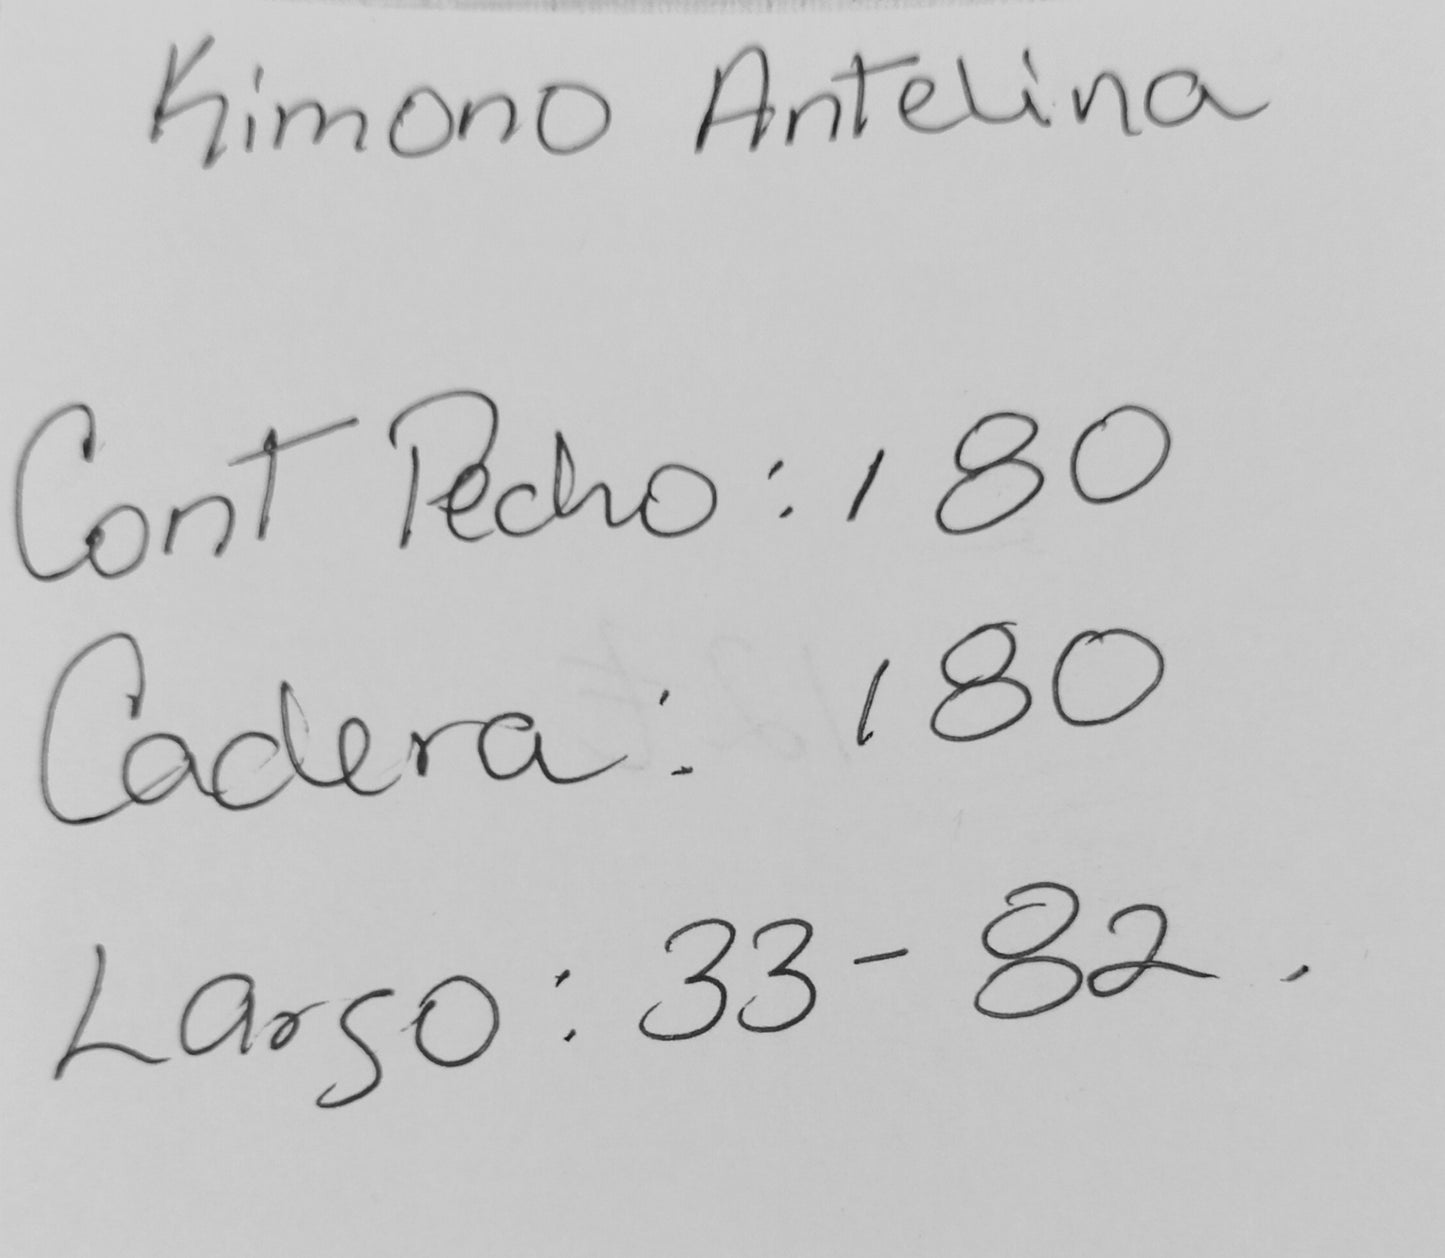 Kimono Antelina
Cont Pecho: 180
Cadera: 180
Largo: 33-82.